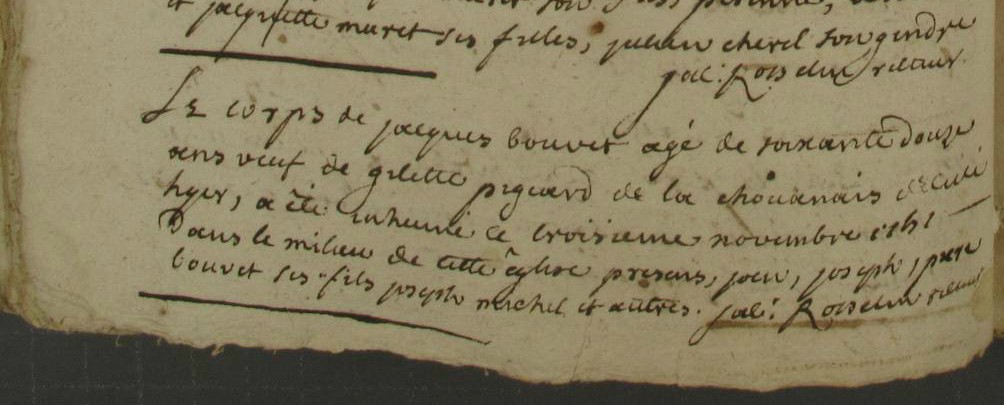 et jacquette muret ses filles, julien cherel son gendre
jul: Rosselin recteur.
Le corps de jacques bouvet agé de soixante douze
ans veuf de gilette piguard de la chouanais décédé
hyer, a été inhumé ce troisieme novembre 1761
Dans le milieu de cette église presens, jean, joseph, pierre
bouvet ses fils joseph michel et autres. jul: Rosselin recteur